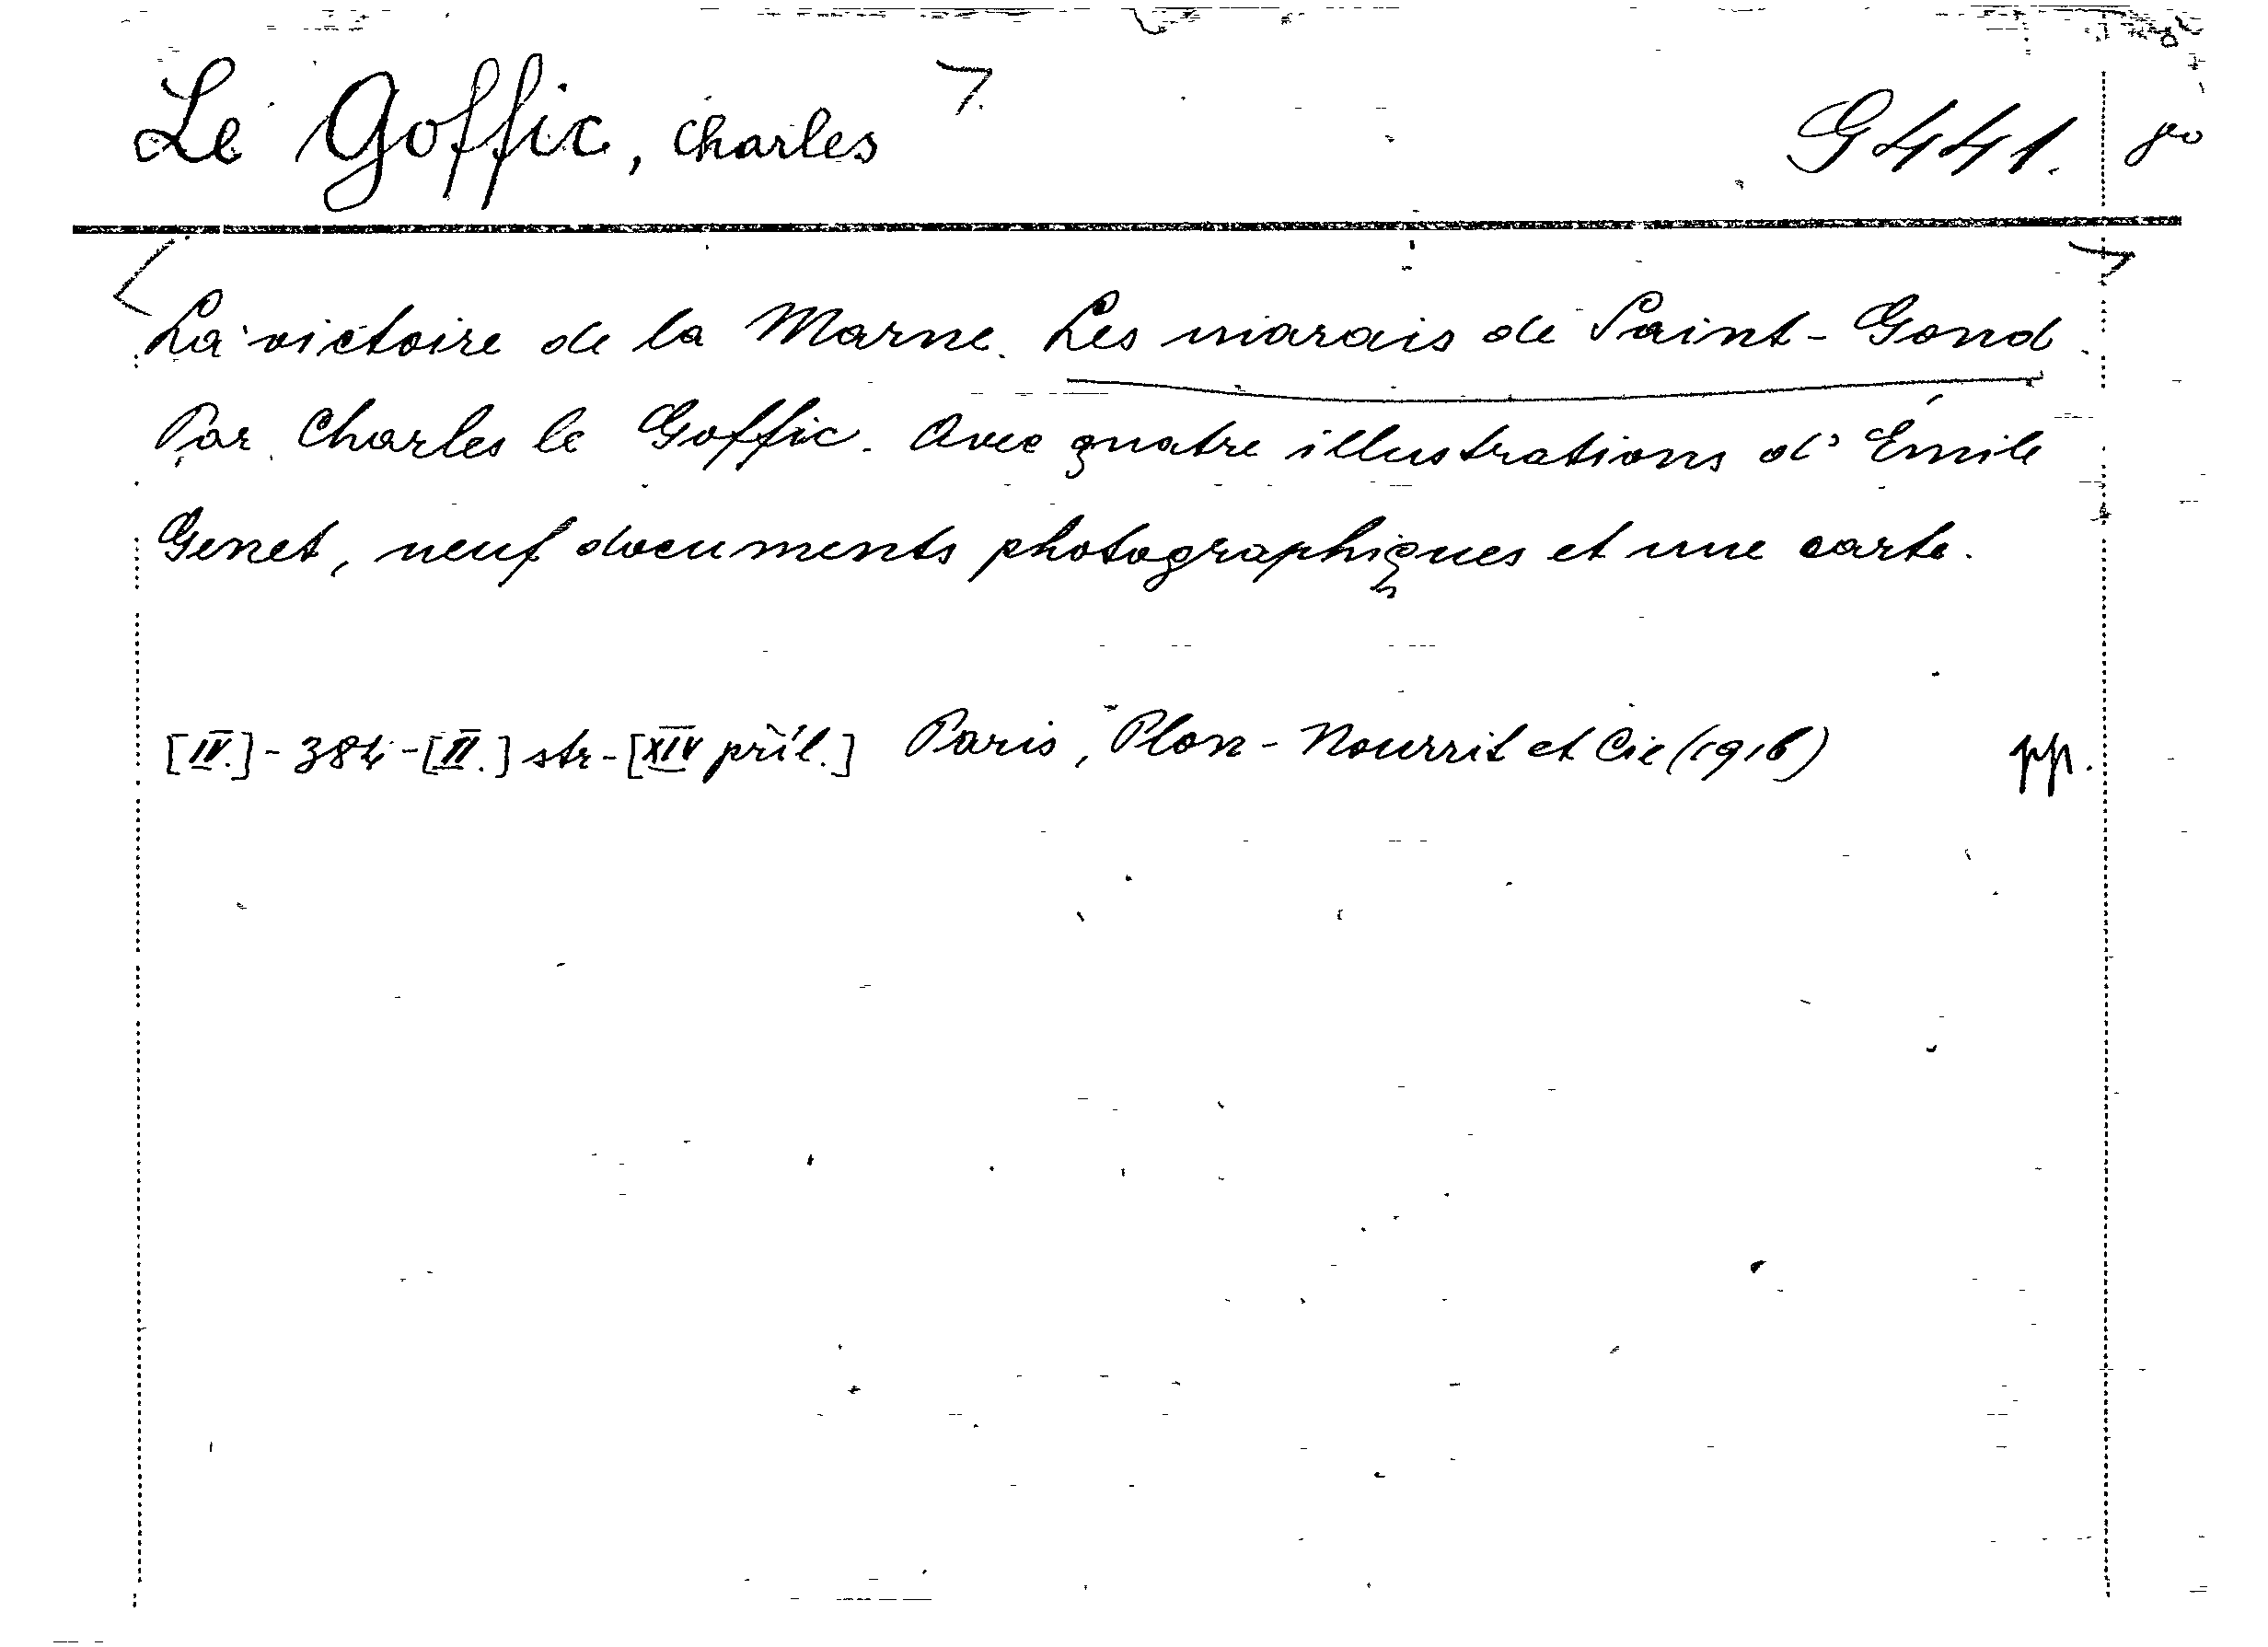 Le Goffic, Charles G 441. 80
La victoire de la Marne. Les marais de Saint-Gond.
Par Charles le Goffic. Avec quatre illustrations d'Émile
Genet, neuf documents photographiques et une carte.
[IV.]-384-[II.] str-[XIV příl.] Paris, Plon-Nourrit et Cie (1916) pp.